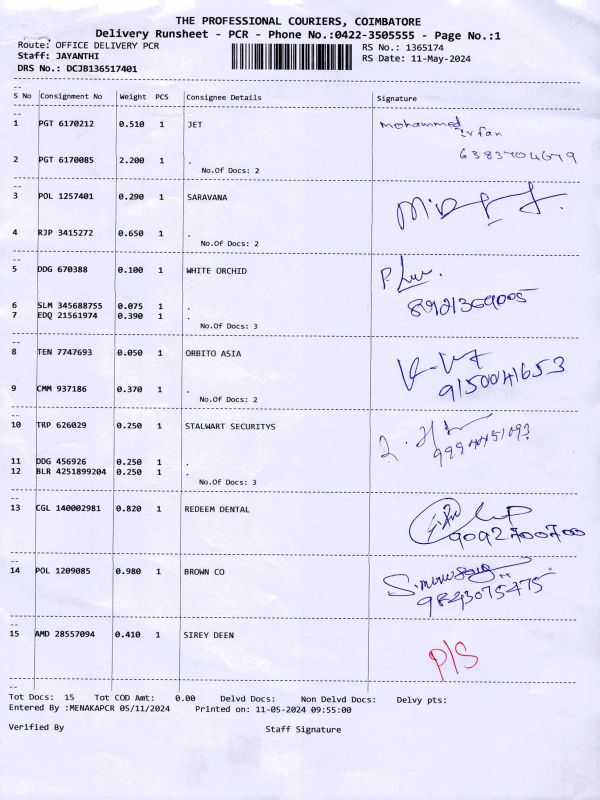 THE PROFESSIONAL COURIERS, COIMBATORE
Delivery Runsheet - PCR - Phone No.:0422-3505555 - Page No.:1
Route: OFFICE DELIVERY PCR RS No.: 1365174
Staff: JAYANTHI RS Date: 11-May-2024
DRS No.: DCJB136517401
S No Consignment No Weight PCS Consignee Details Signature
1 PGT 6170212 0.510 1 JET mohammed
irfan
2 PGT 6170085 2.200 1 . 6383704679
No.Of Docs: 2
3 POL 1257401 0.290 1 SARAVANA
4 RJP 3415272 0.650 1 .
No.Of Docs: 2
5 DDG 670388 0.100 1 WHITE ORCHID
6 SLM 345688755 0.075 1 .
7 EDQ 21561974 0.390 1 .
No.Of Docs: 3
8 TEN 7747693 0.050 1 ORBITO ASIA
9150041653
9 CMM 937186 0.370 1 .
No.Of Docs: 2
10 TRP 626029 0.250 1 STALWART SECURITYS
11 DDG 456926 0.250 1 .
12 BLR 4251899204 0.250 1 .
No.Of Docs: 3
13 CGL 140002981 0.820 1 REDEEM DENTAL
9092700700
14 POL 1209085 0.980 1 BROWN CO
9843075475
15 AMD 28557094 0.410 1 SIREY DEEN
P/S
Tot Docs: 15 Tot COD Amt: 0.00 Delvd Docs: Non Delvd Docs: Delvy pts:
Entered By :MENAKAPCR 05/11/2024 Printed on: 11-05-2024 09:55:00
Verified By Staff Signature